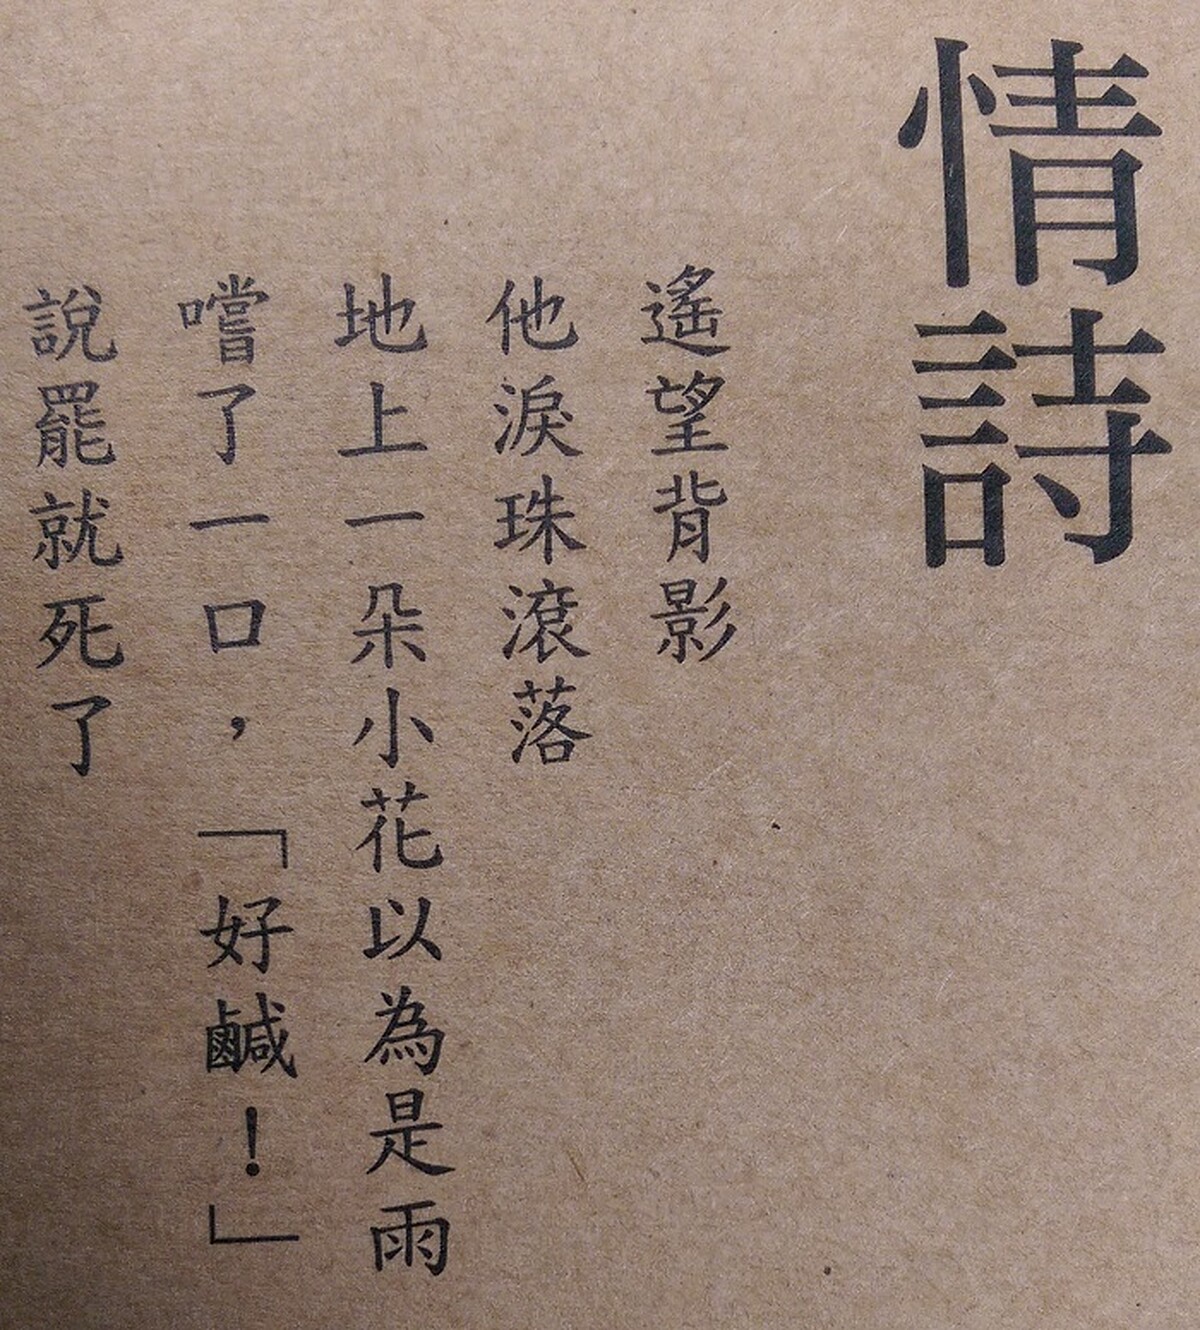 情詩
遙望背影
他淚珠滾落
地上一朵小花以為是雨
嚐了一口，「好鹹！」
說罷就死了